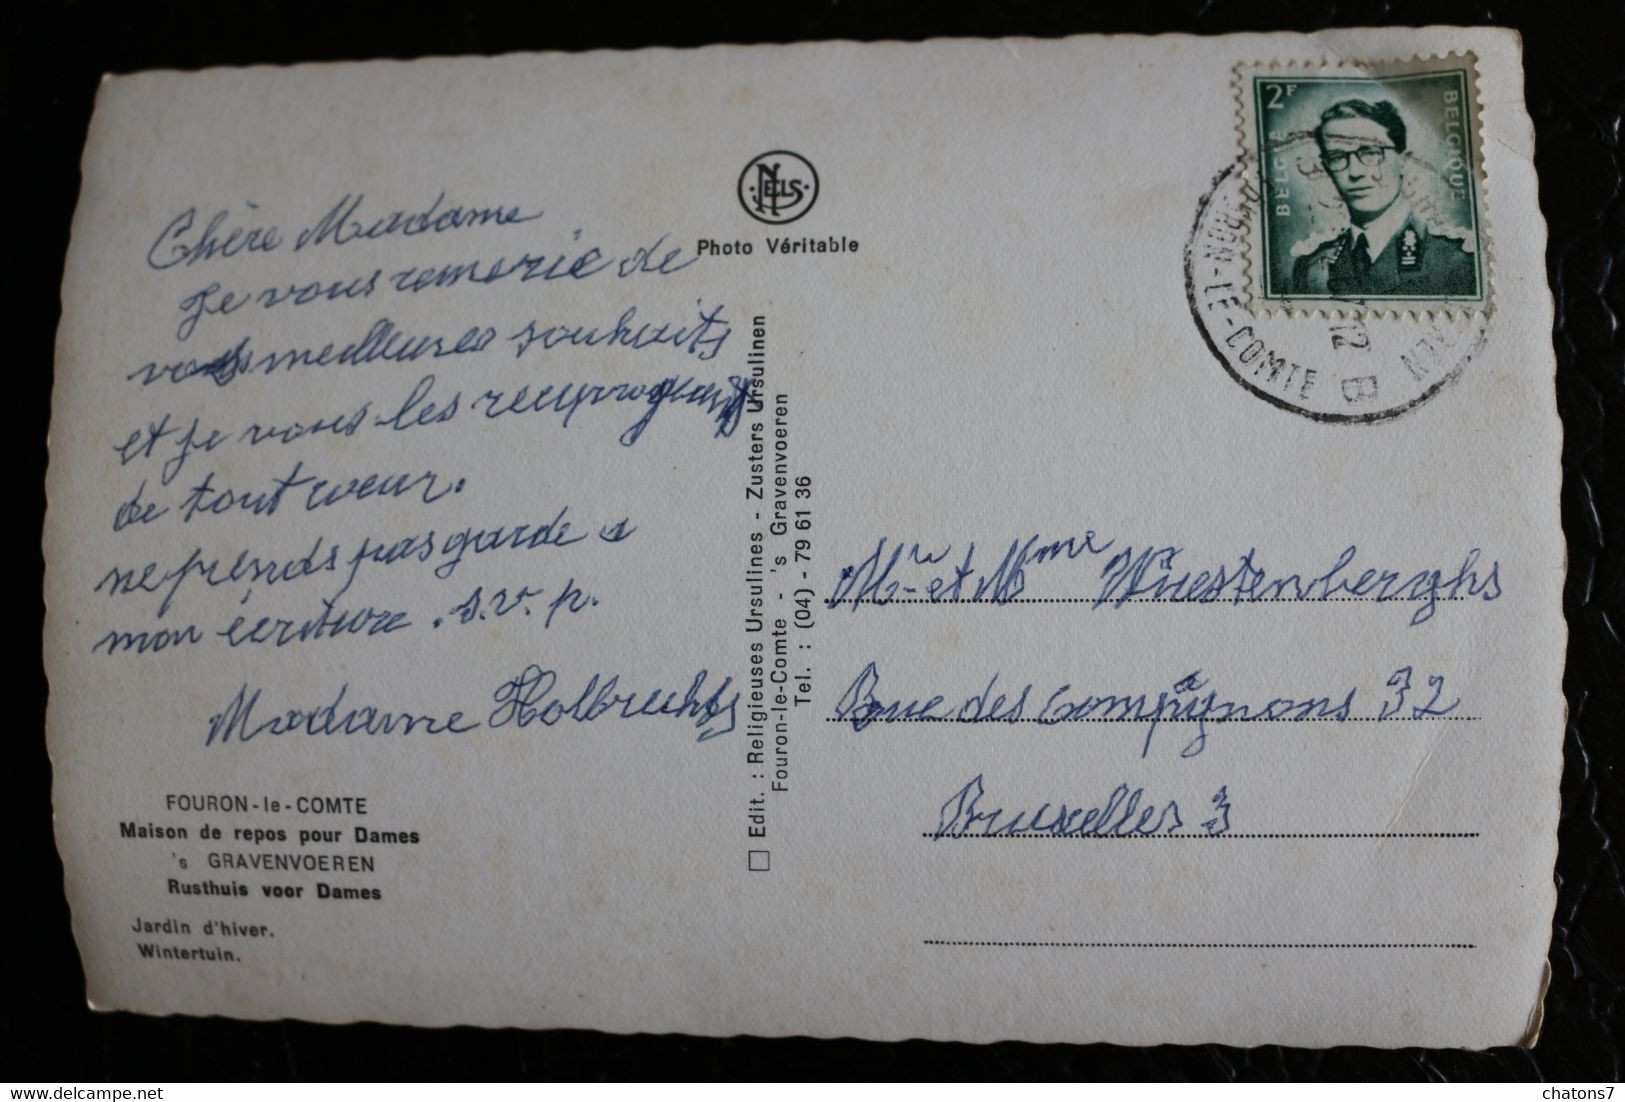 Chère Madame
Je vous remercie de
vos meilleures souhaits
et je vous les
de tout coeur.
ne prends pas garde a
mon écriture. s.v.p.
Madame Holbrechts
FOURON-le-COMTE
Maison de repos pour Dames
's GRAVENVOEREN
Rusthuis voor Dames
Jardin d'hiver.
Wintertuin.
NELS
Photo Véritable
Edit. : Religieuses Ursulines - Zusters Ursulinen
Fouron-le-Comte - 's Gravenvoeren
Tel. : (04) - 79 61 36
2F
BELGIE
BELGIQUE
LE-COMTE
12
B
Mr et Mme Wuestenberghs
Rue des Compagnons 32
Bruxelles 3
chatons7